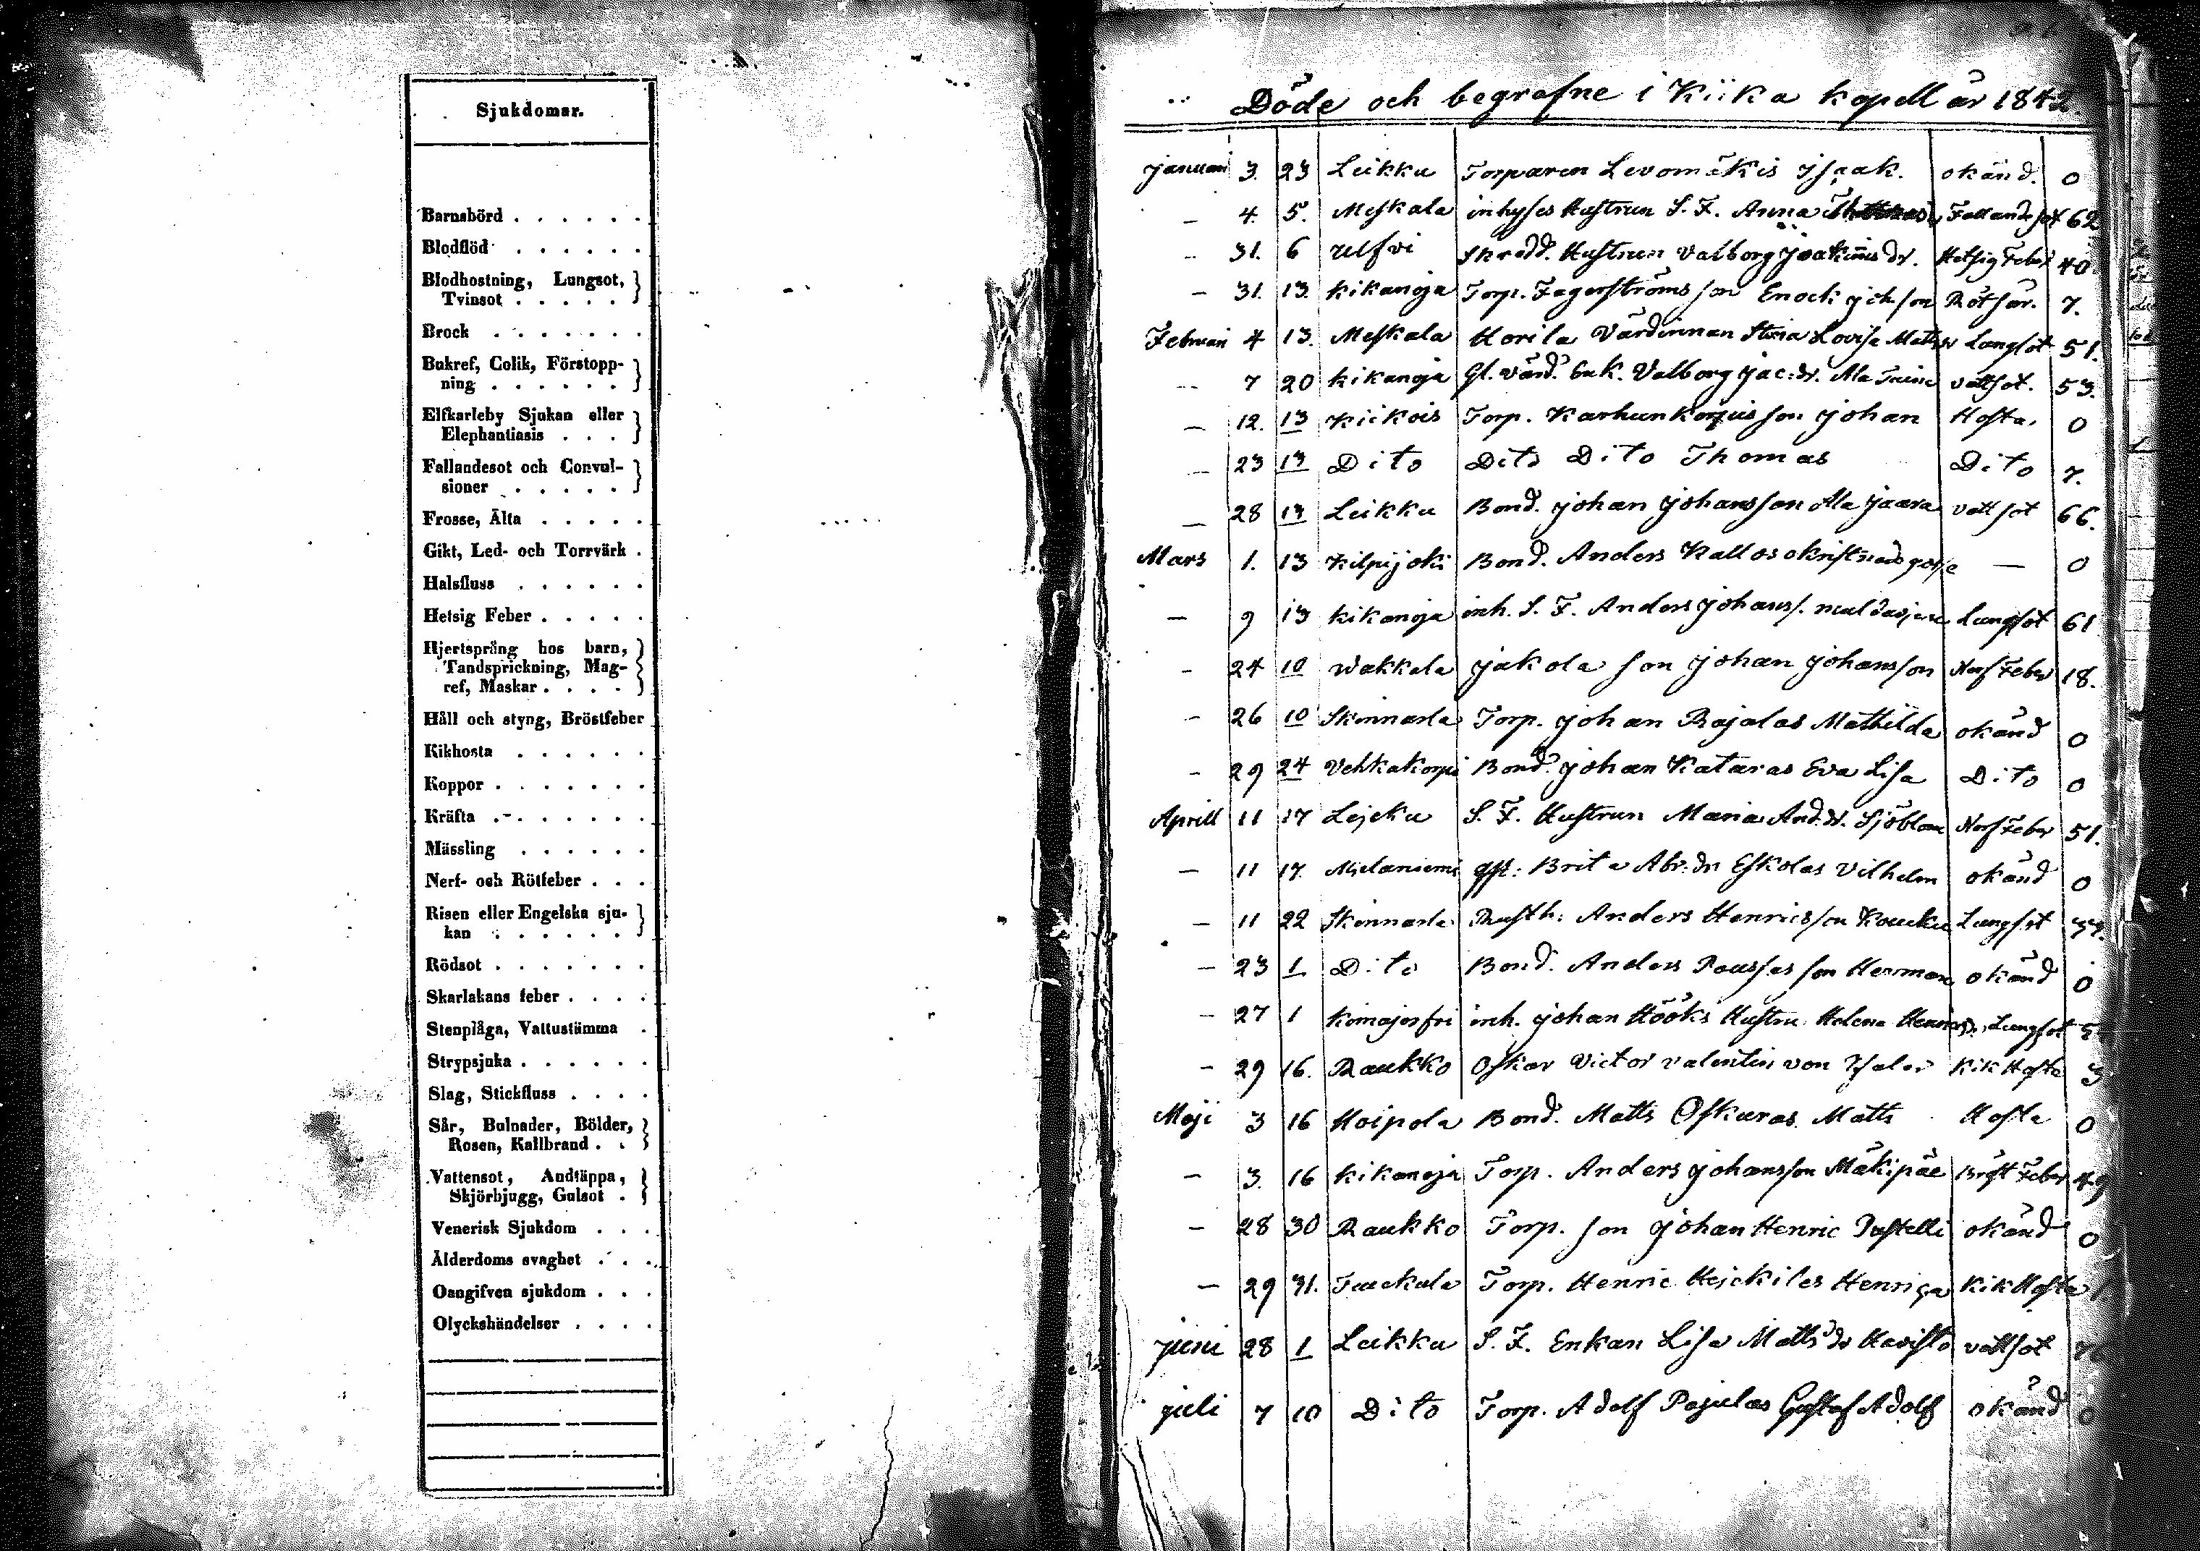 Sjukdomar.
Barnsbörd . . . . . .
Blodflöd . . . . . .
Blodhostning, Lungsot,
Tvinsot . . . . .
Brock . . . . . .
Bukref, Colik, Förstopp-
ning . . . . . .
Elfkarleby Sjukan eller
Elephantiasis . . .
Fallandesot och Convul-
sioner . . . . .
Frosse, Älta . . . . .
Gikt, Led- och Torrvärk .
Halsfluss . . . . . .
Hetsig Feber . . . . .
Hjertspräng hos barn,
Tandsprickning, Mag-
ref, Maskar . . . .
Håll och styng, Bröstfeber
Kikhosta . . . . . .
Koppor . . . . . . .
Kräfta . . . . . . .
Mässling . . . . . .
Nerf- och Rötfeber . . .
Risen eller Engelska sju-
kan . . . . . .
Rödsot . . . . . . .
Skarlakans feber . . . .
Stenplåga, Vattustämma .
Strypsjuka . . . . . .
Slag, Stickfluss . . . .
Sår, Bulnader, Bölder,
Rosen, Kallbrand . .
Vattensot, Andtäppa,
Skjörbjugg, Gulsot .
Venerisk Sjukdom . . .
Ålderdoms svaghet . . .
Oangifven sjukdom . . .
Olyckshändelser . . . .
Döde och begrafne i Kiika kapell år 1842.
Januari 3. 23 Leikku Torparen Levomäkis Isaak. okänd. 0
— 4. 5. Meskala inhyses Hustrun S. F. Anna Fallandesot 62
— 31. 6 Ulfvi Skrädd. Hustrun Valborg Joakimsdr. Hetsig Feber 40
— 31. 13. Kikanoja Torp. Fagerströms son Enock Joh:son Rötsår. 7.
Februari 4 13. Meskala Horila Värdinnan Stina Lovisa Lungsot 51.
— 7 20 Kikanoja Gl. Värd. Enk. Valborg Jac:dr. Ala vattsot. 53.
— 12. 13 Kiikois Torp. Karhunkorpis son Johan Hosta. 0
— 23 13 Dito Dito Dito Thomas Dito 7.
— 28 13 Leikku Bond. Johan Johansson Ala Jaara vattsot 66.
Mars 1. 13 Kilpijoki Bond. Anders Kallos okristnad gosse — 0
— 9 13 Kikanoja inh. S. F. Anders Johanss. Lungsot 61
— 24 10 Wakkala Jakola son Johan Johansson Nerf Feber 18.
— 26 10 Skinnarla Torp. Johan Rajalas Mathilda okänd 0
— 29 24 Vehkakorpi Bond. Johan Kataras Eva Lisa Dito 0
Aprill 11 17 Lejeku S. F. Hustrun Maria And.dr. Sjöblom Nerf Feber 51.
— 11 17. Mielaniemi qfl: Brita Abr:dr Eskolas Vilhelm okänd 0
— 11 22 Skinnarla Rusth: Anders Henricsson Lungsot
— 23 1 Dito Bond. Anders son Herman okänd 0
— 27 1 inh. Johan Hööks Hustru Helena Lungsot
— 29 16. Raukko Oskar Victor Valentin von Kik Hosta 3
Maji 3 16 Hoipola Bond. Matts Oskaras Matts Hosta 0
— 3. 16 Kikanoja Torp. Anders Johansson Mäkipää Bröst Feber 49
— 28 30 Raukko Torp. son Johan Henric okänd 0
— 29 31. Torp. Henric Hejckiles Henrica Kik Hosta 1
Juni 28 1 Leikku S. F. Enkan Lisa Matts dr Havisto vattsot
Juli 7 10 Dito Torp. Adolf Pajulas Gustaf Adolf okänd 0